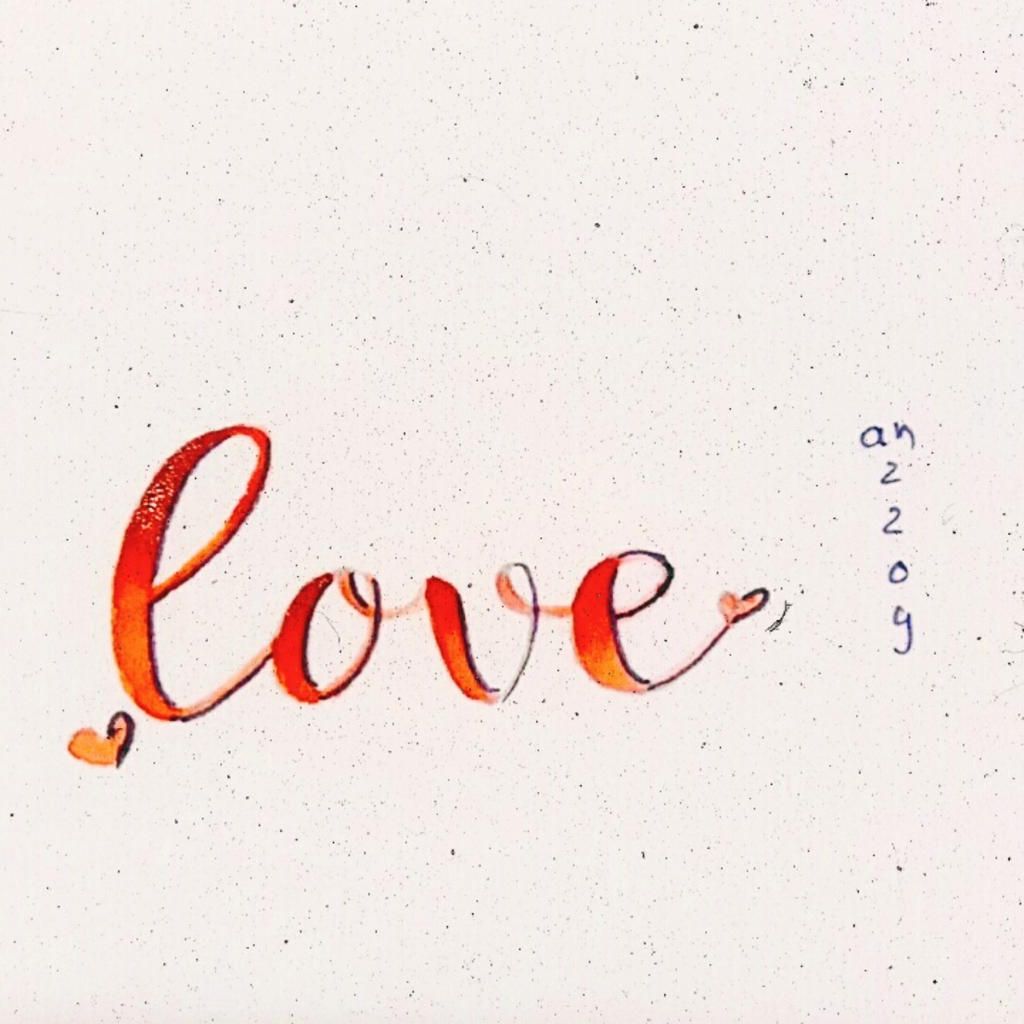 love
an
2
2
0
9